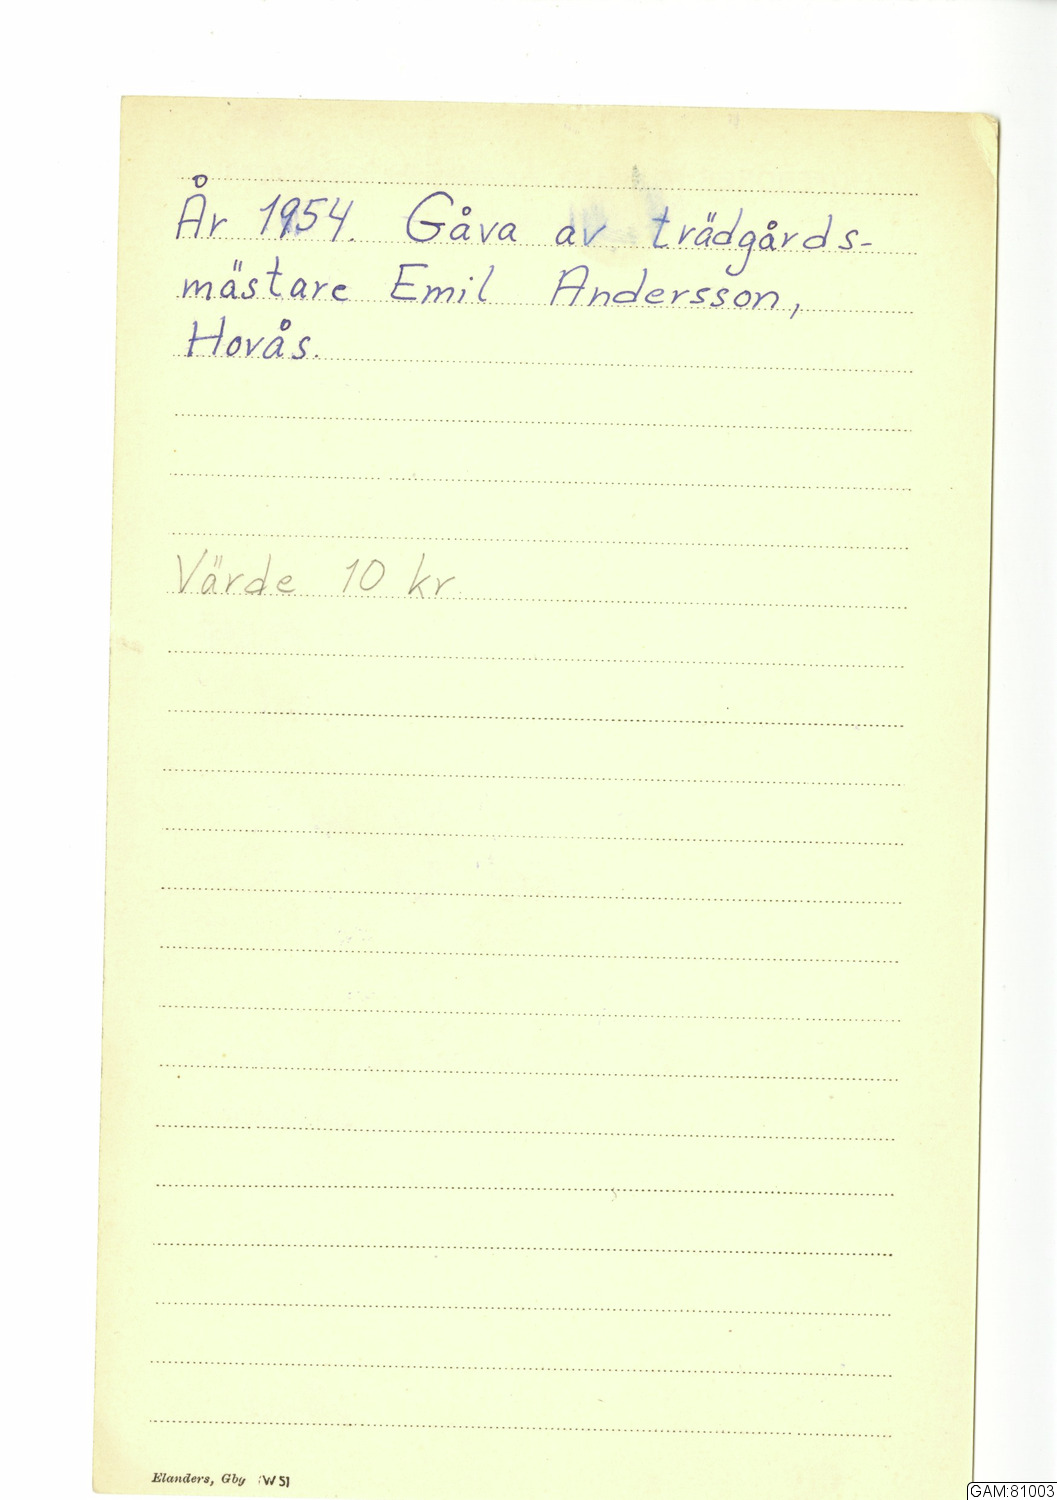 År 1954. Gåva av trädgårds-
mästare Emil Andersson,
Hovås.
Värde 10 kr
Elanders, Gbg W51
GAM:81003